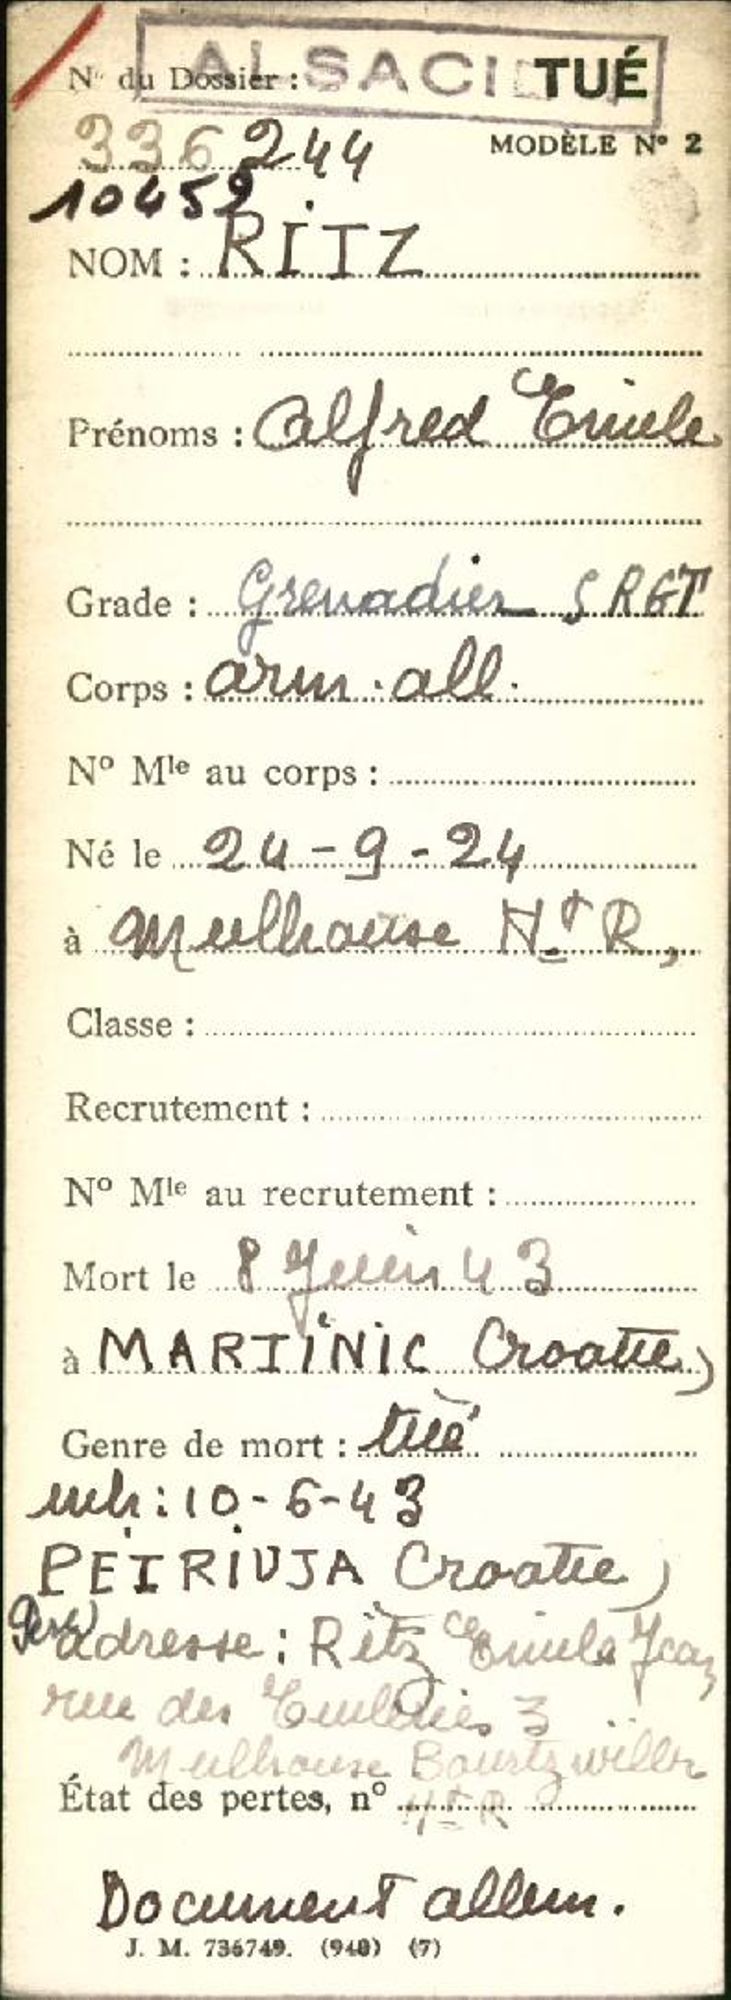 ALSACI TUÉ
N° du Dossier :
336 244
MODÈLE N° 2
10459
NOM : RITZ
Prénoms : Alfred Emile
Grade : Grenadier S RGT
Corps : arm. all.
N° Mle au corps :
Né le 24-9-24
à Mulhouse Ht R,
Classe :
Recrutement :
N° Mle au recrutement :
Mort le 8 Juin 43
à MARTINIC Croatie)
Genre de mort : tué
inh : 10-6-43
PETRINJA Croatie)
adresse : Ritz Emile Jean
rue des 3
Mulhouse Bourtzwiller
État des pertes, n° Ht R
Document allem.
J. M. 736749. (940) (7)